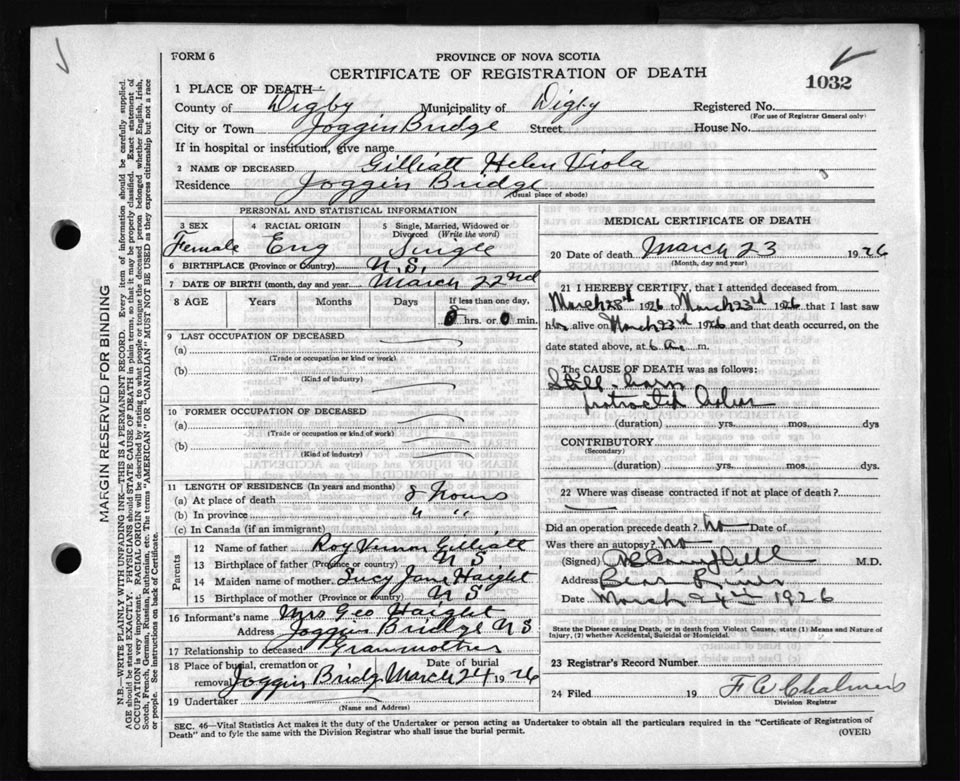 FORM 6
PROVINCE OF NOVA SCOTIA
CERTIFICATE OF REGISTRATION OF DEATH
1032
1 PLACE OF DEATH—
County of Digby Municipality of Digby Registered No.
(For use of Registrar General only)
City or Town Joggin Bridge Street House No.
If in hospital or institution, give name
2 NAME OF DECEASED Gilliatt Helen Viola
Residence Joggin Bridge
(Usual place of abode)
PERSONAL AND STATISTICAL INFORMATION
3 SEX Female
4 RACIAL ORIGIN Eng
5 Single, Married, Widowed or Divorced (Write the word) Single
6 BIRTHPLACE (Province or Country) N.S.
7 DATE OF BIRTH (month, day and year) March 22nd
8 AGE Years Months Days If less than one day, 0 hrs. or 0 min.
9 LAST OCCUPATION OF DECEASED
(a)
(Trade or occupation or kind of work)
(b)
(Kind of industry)
10 FORMER OCCUPATION OF DECEASED
(a)
(Trade or occupation or kind of work)
(b)
(Kind of industry)
11 LENGTH OF RESIDENCE (In years and months)
(a) At place of death 8 Hours
(b) In province " "
(c) In Canada (if an immigrant)
Parents
12 Name of father Roy Vernon Gilliatt
13 Birthplace of father (Province or country) N S
14 Maiden name of mother Lucy Jane Haight
15 Birthplace of mother (Province or country) N S
16 Informant's name Mrs Geo Haight
Address Joggin Bridge N S
17 Relationship to deceased Granmother
18 Place of burial, cremation or removal Joggin Bridge Date of burial March 24 1926
19 Undertaker
(Name and Address)
MEDICAL CERTIFICATE OF DEATH
20 Date of death March 23 1926
(Month, day and year)
21 I HEREBY CERTIFY, that I attended deceased from
March 23rd 1926 to March 23rd 1926 that I last saw
her alive on March 23rd 1926 and that death occurred, on the
date stated above, at 6 a. m.
The CAUSE OF DEATH was as follows:
Still-born
protracted labor
(duration) yrs. mos. dys
CONTRIBUTORY
(Secondary)
(duration) yrs. mos. dys.
22 Where was disease contracted if not at place of death?
Did an operation precede death? No Date of
Was there an autopsy? No
(Signed) M.D.
Address Bear River
Date March 24th 1926
State the Disease causing Death, or in death from Violent Causes, state (1) Means and Nature of
Injury, (2) whether Accidental, Suicidal or Homicidal.
23 Registrar's Record Number
24 Filed 19 F W Chalmers
Division Registrar
SEC. 46—Vital Statistics Act makes it the duty of the Undertaker or person acting as Undertaker to obtain all the particulars required in the "Certificate of Registration of
Death" and to fyle the same with the Division Registrar who shall issue the burial permit. (OVER)
MARGIN RESERVED FOR BINDING
N.B.—WRITE PLAINLY WITH UNFADING INK—THIS IS A PERMANENT RECORD. Every item of information should be carefully supplied.
AGE should be stated EXACTLY. PHYSICIANS should STATE CAUSE OF DEATH in plain terms, so that it may be properly classified. Exact statement of
OCCUPATION is very important. RACIAL ORIGIN will be described by stating to what people or tongue the deceased person belonged whether English, Irish,
Scotch, French, German, Russian, Ruthenian, etc. The terms "AMERICAN" or "CANADIAN" MUST NOT BE USED as they express citizenship but not a race
or people. See instructions on back of Certificate.